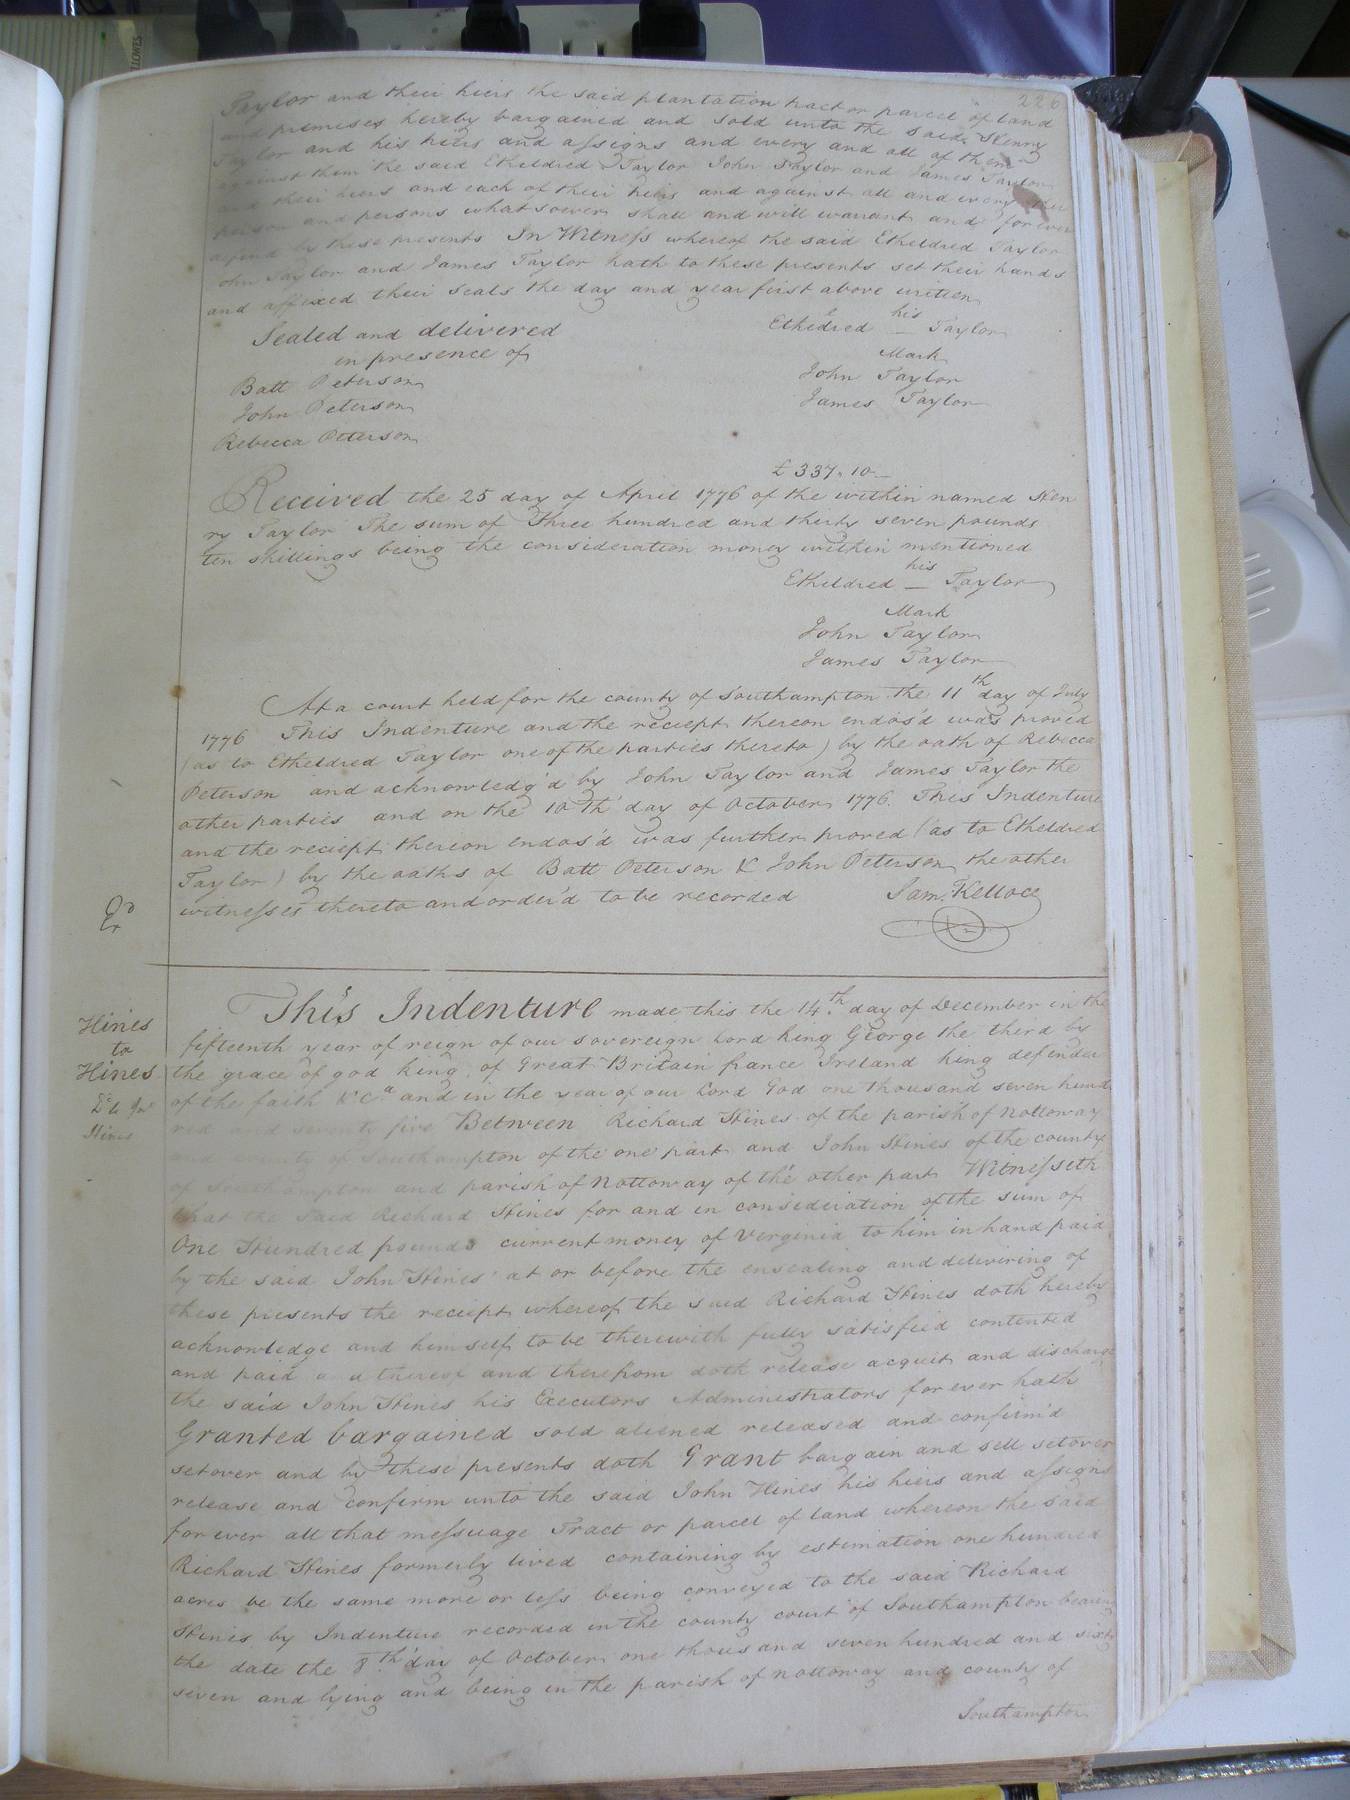 226
Taylor and their heirs the said plantation tract or parcel of land
and premises hereby bargained and sold unto the said Henry
Taylor and his heirs and assigns and every and all of them
against them the said Etheldred Taylor John Taylor and James Taylor
and their heirs and each of their heirs and against all and every other
person and persons whatsoever shall and will warrant and for ever
defend by these presents In Witness whereof the said Etheldred Taylor
John Taylor and James Taylor hath to these presents set their hands
and affixed their seals the day and year first above written
Sealed and delivered
in presence of
Batt Peterson
John Peterson
Rebecca Peterson
his
Etheldred — Taylor
Mark
John Taylor
James Taylor
£ 337. 10 —
Received the 25 day of April 1776 of the within named Hen
ry Taylor The sum of Three hundred and thirty seven pounds
ten shillings being the consideration money within mentioned
his
Etheldred — Taylor
Mark
John Taylor
James Taylor
At a court held for the county of Southampton the 11th day of July
1776 This Indenture and the reciept thereon endos'd was proved
(as to Etheldred Taylor one of the parties thereto) by the oath of Rebecca
Peterson and acknowledg'd by John Taylor and James Taylor the
other parties and on the 10th day of October 1776. This Indenture
and the reciept thereon endos'd was further proved (as to Etheldred
Taylor) by the oaths of Batt Peterson & John Peterson the other
witnesses thereto and order'd to be recorded Sam. Kelloce
Hines
to
Hines
Hines
This Indenture made this the 14th day of December in the
fifteenth year of reign of our sovereign Lord King George the third by
the grace of god king of Great Britain france Ireland king defender
of the faith &c.a and in the year of our Lord God one thousand seven hund
red and seventy five Between Richard Hines of the parish of Nottoway
and county of Southampton of the one part and John Hines of the county
of Southampton and parish of Nottoway of the other part Witnesseth
that the said Richard Hines for and in consideration of the sum of
One Hundred pounds current money of Verginia to him in hand paid
by the said John Hines at or before the ensealing and delivering of
these presents the reciept whereof the said Richard Hines doth hereby
acknowledge and himself to be therewith fully satisfied contented
and paid and thereof and therefrom doth release acquit and discharge
the said John Hines his Executors Administrators for ever hath
Granted bargained sold aliened released and confirm'd
setover and by these presents doth Grant bargain and sell setover
release and confirm unto the said John Hines his heirs and assigns
for ever all that messuage Tract or parcel of land whereon the said
Richard Hines formerly lived containing by estimation one hundred
acres be the same more or less being conveyed to the said Richard
Hines by Indenture recorded in the county court of Southampton bearing
the date the 8th day of October one thousand seven hundred and sixty
seven and lying and being in the parish of Nottoway and county of
Southampton